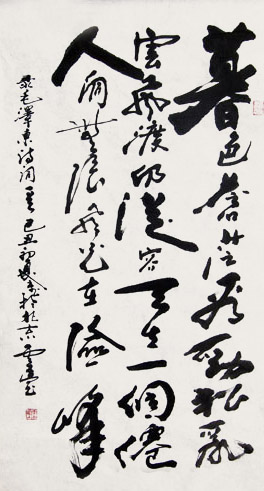 暮色蒼茫看勁松亂
雲飛渡仍從容天生一個僊
人洞無限風光在險峰
录毛澤東詩詞一首己丑初於京